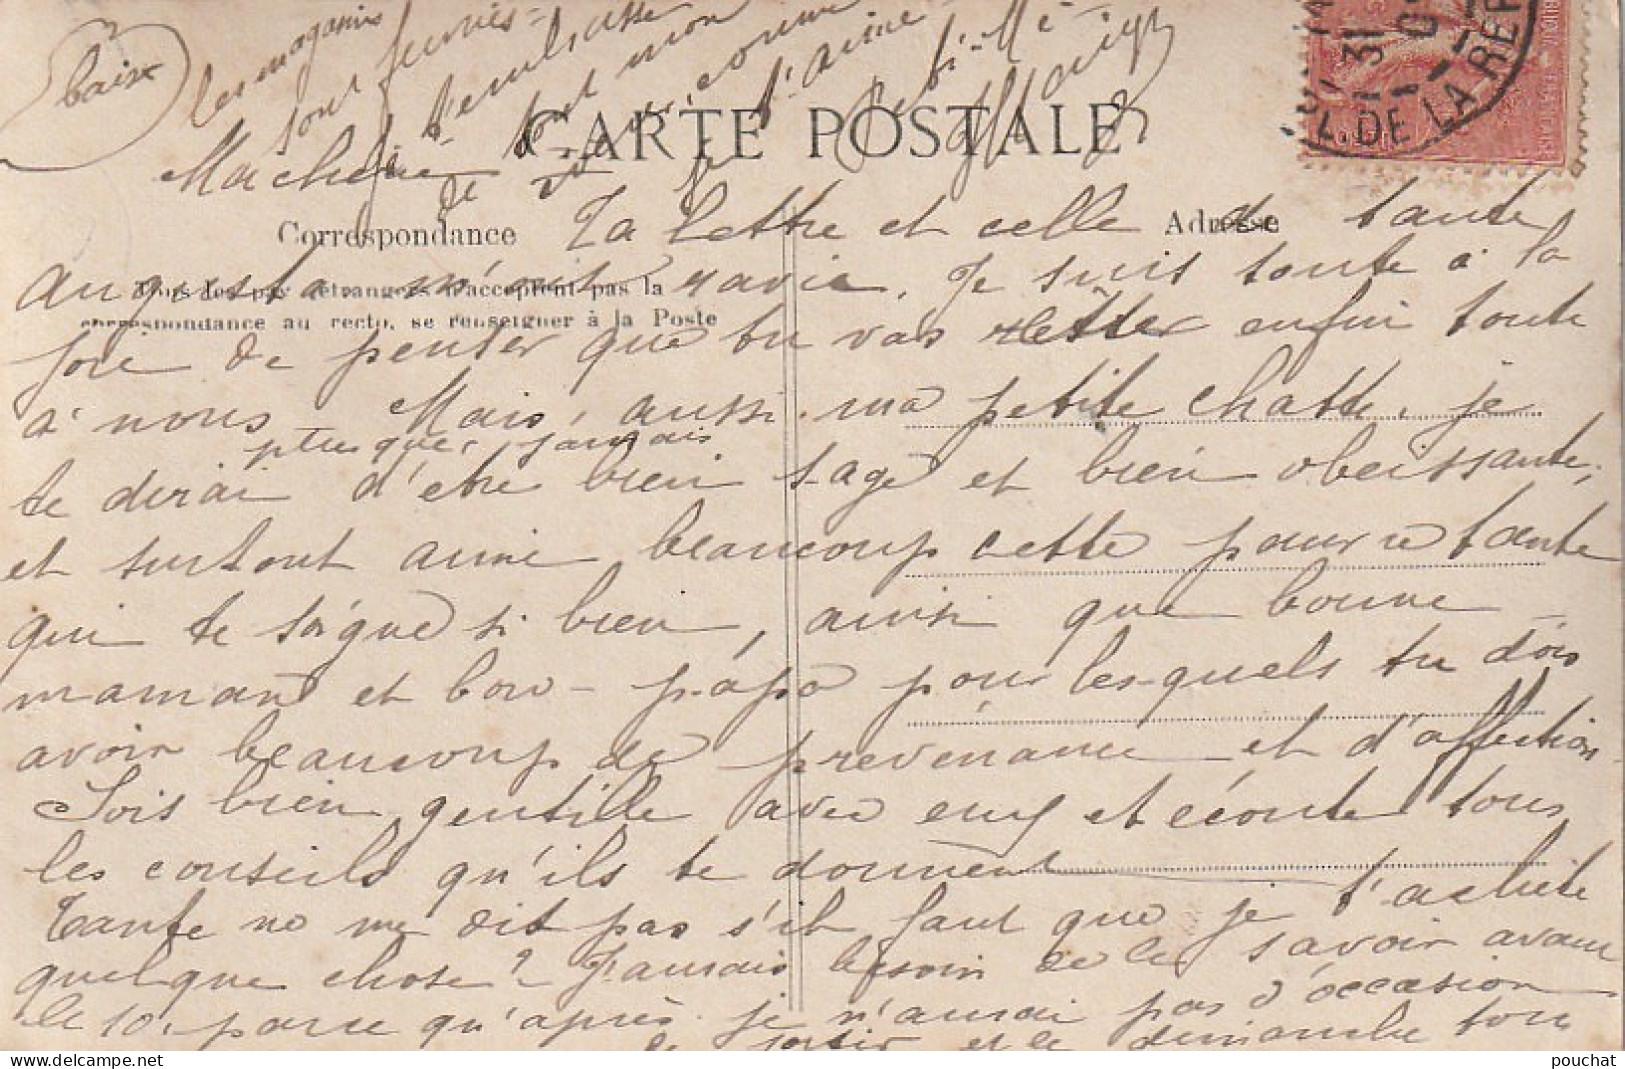 CARTE POSTALE
Correspondance
Adresse
Tous les pays étrangers n'acceptent pas la
correspondance au recto, se renseigner à la Poste
DE LA RÉP
Ma chérie
Ta lettre et celle de tante
augusta m'ont ravie. Je suis toute à la
joie de penser que tu vas rester enfin toute
à nous. Mais, aussi, ma petite chatte, je
plus que jamais
te dirai d'être bien sage et bien obeissante,
et surtout aime beaucoup cette pauvre tante
qui te soigne si bien, ainsi que bonne
maman et bon-papa pour lesquels tu dois
avoir beaucoup de prévenance et d'affection
Sois bien gentille avec eux et écoute tous
les conseils qu'ils te donnent
Tante ne me dit pas s'il faut que je t'achète
quelque chose? J'aurais besoin de le savoir avant
le 10, parce qu'après je n'aurai pas d'occasion
de sortir et le dimanche tous
les magasins
sont fermés
Je t'embrasse
de tout mon
cœur comme
je t'aime
baiser
pouchat